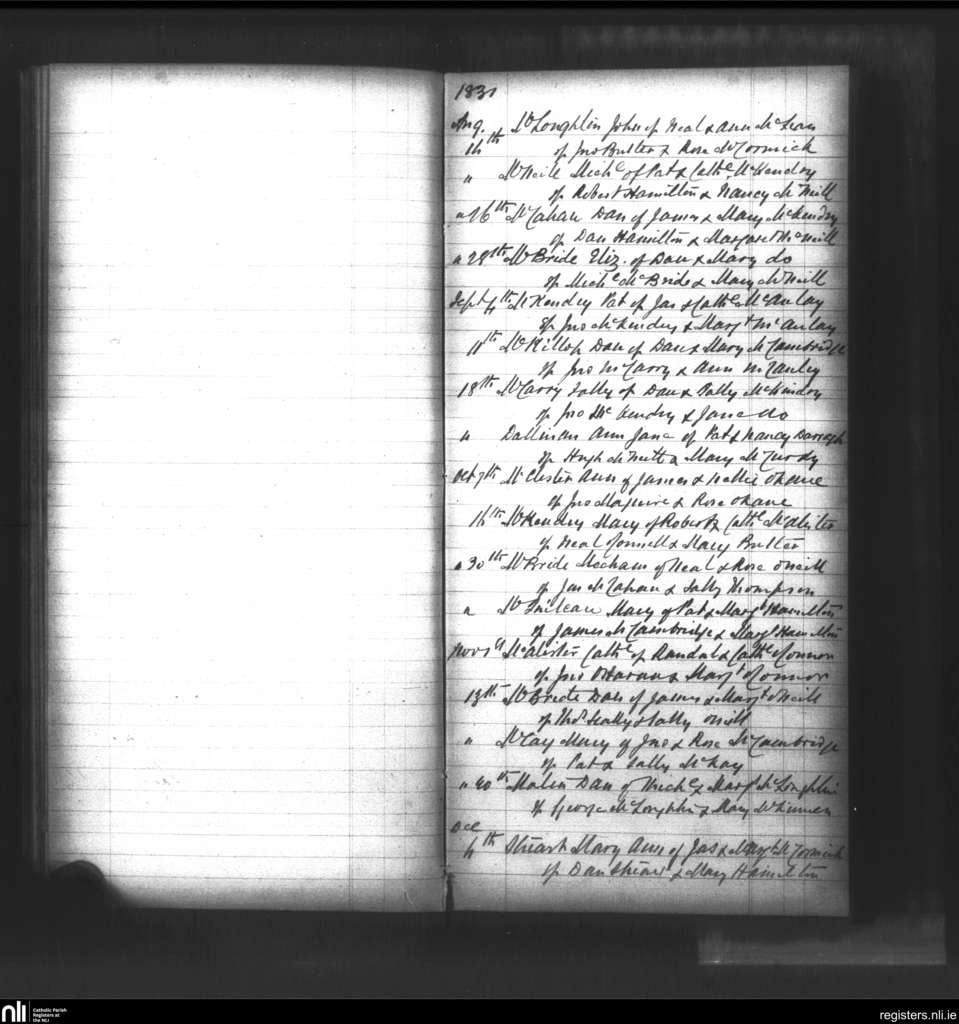 1831
Aug. McLoughlin John of Neal & Ann McLean
14th of Jno Butler & Rose McCormick
" McNeill Michl of Pat & Cathe McKendry
of Robert Hamilton & Nancy McNeill
" 26th McCahan Dan of James & Mary McKendry
of Dan Hamilton & Margaret McNeill
" 28th McBride Eliz. of Dan & Mary do
of Michl McBride & Mary McNeill
Sept 4th McKendry Pat of Jas & Cathe McAulay
of Jno McKendry & Margt McAulay
11th McKillop Dan of Dan & Mary McCambridge
of Jno McCarry & Ann McCauley
18th McCarry Sally of Dan & Patty McKendry
of Jno McKendry & Jane do
" Ann Jane of Pat & Nancy Darragh
of Hugh & Mary McCurdy
Oct 7th McClester Ann of James & OKane
of Jno Maguire & Rose OKane
14th McKendry Mary of Robert & Cathe McAlister
of Neal OConnell & Mary Butler
" 30th McBride of Neal & Rose ONeill
of Jas McCahan & Sally Thompson
" Mary of Pat & Margt Hamilton
of James McCambridge & Margt Hamilton
Nov 1st McAlister Cathe of Randal & Cathe OConnor
of Jno OHaran & Margt OConnor
13th McBride Dan of James & Margt ONeill
of Thos Scally & Sally ONeill
" McCay Mary of Jno & Rose McCambridge
of Pat & Sally McKay
" 20th Dan of Michl & Margt McLoughlin
of George McLoughlin & Mary
Dec
4th Stuart Mary Ann of Jas & Margt McCormick
of Dan Stuart & Mary Hamilton
nli
Catholic Parish
Registers at
the NLI
registers.nli.ie